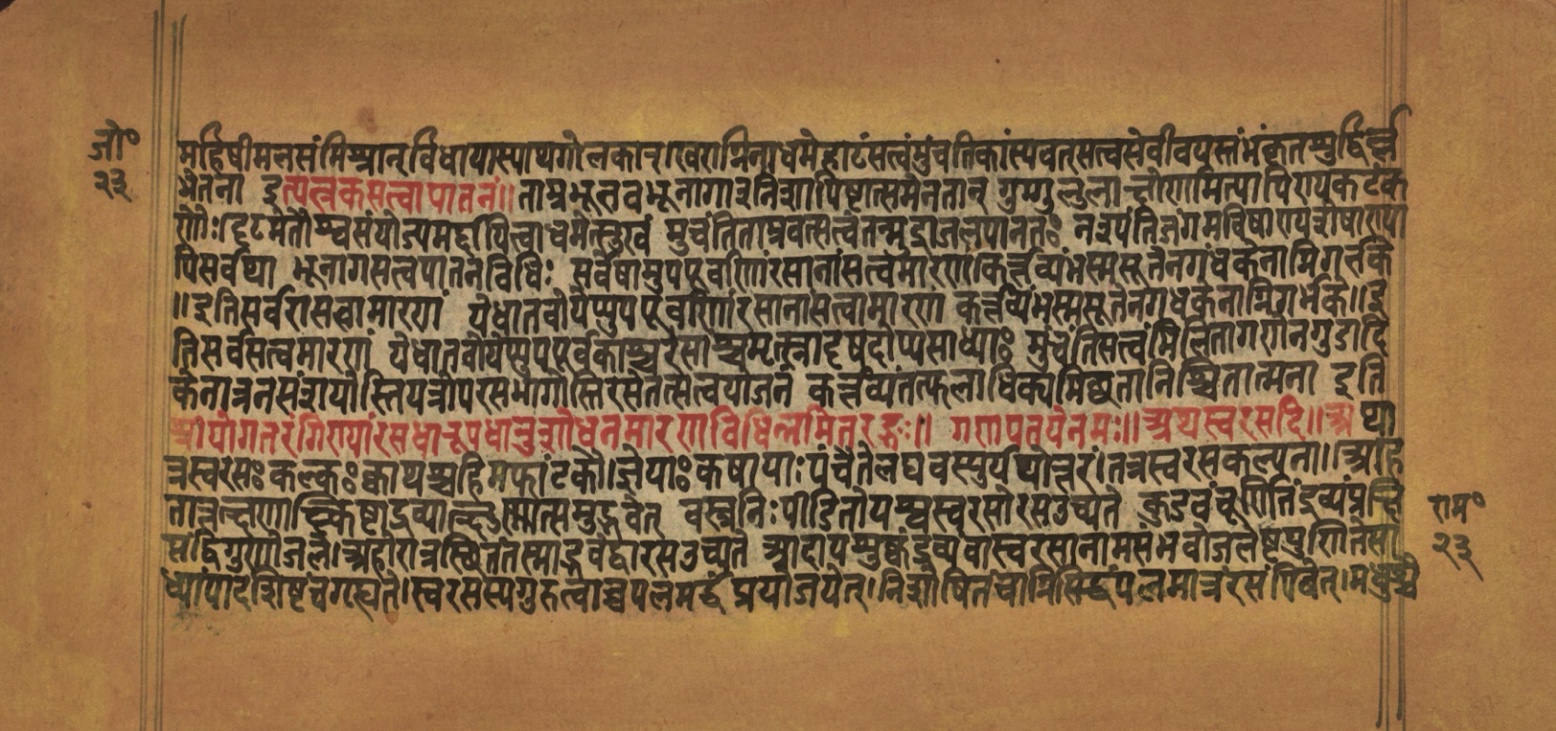 जो॰
२३
महिषीमलसंमिश्रान् विधायास्याथगोलकान् खराग्निनाधमेद्गाटंसत्वंमुंचतिकांस्यवत् सत्वसेवी
भ्रेतना इत्यत्नकसत्वापातनं॥ ताम्रभूतवभूनागा पिष्टात्समेनतान् गुग्गुलुला
संयोज्यमर्द्दयित्वाधमेत्सुखं मुचंतिताम्रवत्सत्वंतन्मुद्राजलपानतः नश्यंतिजंगमविषाण्यशेषाण्य
पिसर्वथा भूनागसत्वपातनविधिः सर्वेषामुपपूर्वाणांरसानांसत्वमारणकिर्त्तव्यंभस्मसूतेनगंधकेनाग्निगर्त्तके
॥इतिसर्वरासत्वामारणं येधातवोयेप्युपपूर्वाणांरसानासत्वामारणं कर्त्तव्यंभस्मसूतेनगधकेनाग्निगर्भके॥इ
तिसर्वसत्वमारणं येधातवोयेप्युपपूर्वकाश्चरसाश्च साध्याः मुंचंतिसत्वंमिलितागणेनगुडादि
केनात्रनसंशयोस्ति कर्त्तव्यंतत्फलाधिक्यमिछतानिश्चितात्मना इति
श्रीयोगतरंगिण्यांरसधातूपधातुशोधनमारणविधिर्नामतरङ्गः॥ गणपतयेनमः॥अथस्वरसादि॥अथा
त्रस्वरसः कल्कः क्वाथश्चहिमफांटकौ।ज्ञेयाः कषायाः पंचैतेलघवस्युर्यथोत्तरं।तत्रस्वरसकल्पना॥अहि
तात्तत्क्षणाकृष्टाद्रव्यात्क्षुण्णात्समुद्भवेत् वस्त्रनिःपीडितोयश्चस्वरसोरसउच्यते कुडवंचूर्णितंद्रव्यंप्रक्षि
प्तंद्विगुणेजले।अहोरात्रस्थितंतस्माद्भवेद्वारसउच्यते आदायशुष्कंद्रव्यंवास्वरसानामसंभवेजलेष्टगुणितेसा
ध्यंपादशिष्टंचगृह्यते।स्वरसस्यगुरुत्वाच्चपलमर्द्धं प्रयोजयेत्।निशोषितंचाग्निसिद्धंपलमात्रंरसंपिबेत्।मधुश्चे
राम॰
२३